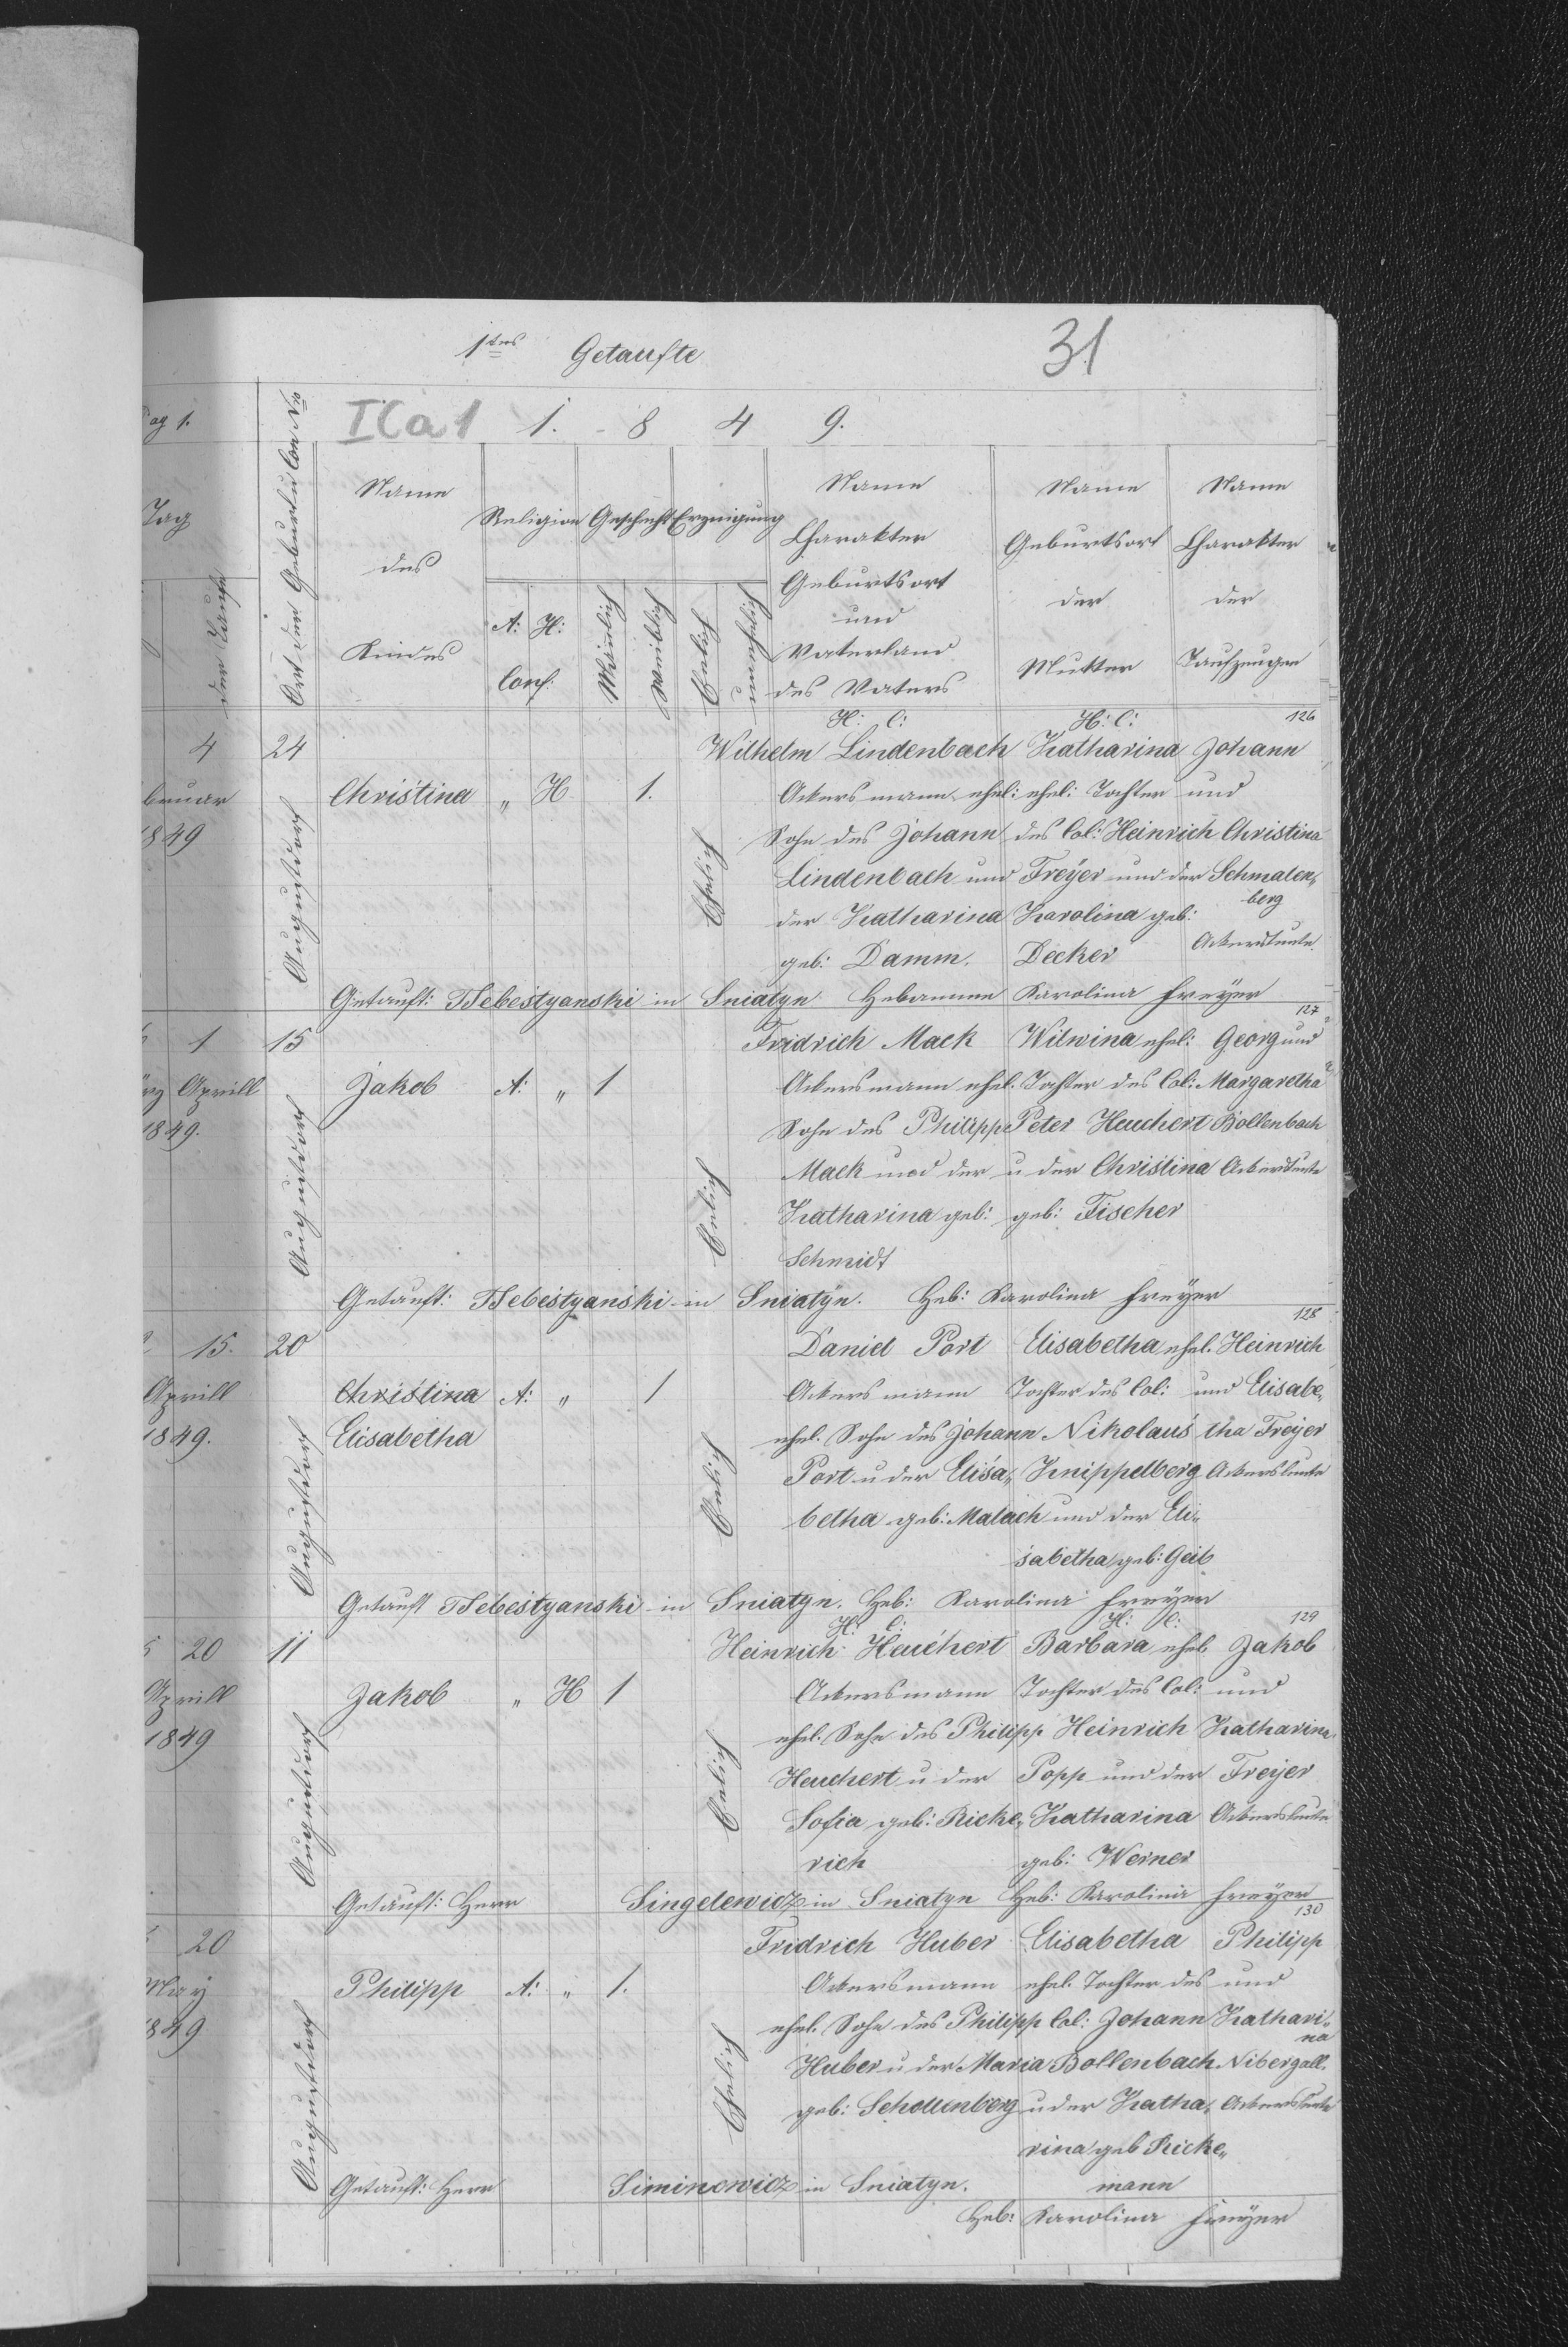 1tes Getaufte 31
ag 1. ICa1 1. 8 4 9.
Tag
der Taufe
Ort der Geburt u Con Nro
Name des Kindes
Religion Geschecht Erzeigung
A: H:
Conf:
Mänlich
Weiblich
Ehelich
unehelich
Name Charakter Geburtsort und Vaterland des Vaters
Name Geburtsort der Mutter
Name Charakter der Taufzeugen
H: C: H: C: 126
4 24 Wilhelm Lindenbach Katharina Johann
bruar Christina „ H 1. Ackersmann ehel: ehel: Tochter und
1849 Sohn des Johann des Col: Heinrich Christina
Augustdorf Ehelich Lindenbach und Freyer und der Schmalen„
berg
der Katharina Karolina geb:
geb: Damm. Decker Ackersleute.
Getauft: Tsebestyanski in Sniatyn Hebamme Karolina Freyer
127
1 15 Fridrich Mack Wilwina ehel: Georg und
rz Aprill Jakob A: „ 1 Ackersmann ehel. Tochter des Col: Margaretha
1849. Sohn des Philipp Peter Heuchert Bollenbach
Augustdorf Ehelich Mack und der u der Christina Ackersleute
Katharina geb: geb: Fischer
Schmidt
Getauft: Tsebestyanski in Sniatyn. Heb: Karolina Freyer
128
15. 20 Daniel Port Elisabetha ehel. Heinrich
Aprill Christina A: „ 1 Ackersmann Tochter des Col: und Elisabe„
1849. Elisabetha ehel. Sohn des Johann Nikolaus tha Freyer
Augustdorf Ehelich Port u der Elisa„ Knippelberg Ackersleute
betha geb: Malach und der Eli„
sabetha geb: Geib
Getauft Tsebestyanski in Sniatyn. Heb: Karolina Freyer
H: C: H: C: 129
20 11 Heinrich Heuchert Barbara ehel. Jakob
Aprill Jakob „ H 1 Ackersmann Tochter des Col: und
1849 ehel. Sohn des Philipp Heinrich Katharina
Augustdorf Ehelich Heuchert u der Popp und der Freyer
Sofia geb: Ricke„ Katharina Ackersleute
rich geb: Werner
Getauft: Herr Singelewicz in Sniatyn Heb: Karolina Freyer
130
20 Fridrich Huber Elisabetha Philipp
May Philipp A: „ 1. Ackersmann ehel. Tochter des und
1849 ehel. Sohn des Philipp Col: Johann Kathari„
na
Augustdorf Ehelich Huber u der Maria Bollenbach Nibergall.
geb: Schellenberg u der Katha„ Ackersleute
rina geb Ricke„
Getauft: Herr Siminowicz in Sniatyn. mann
Heb: Karolina Freyer